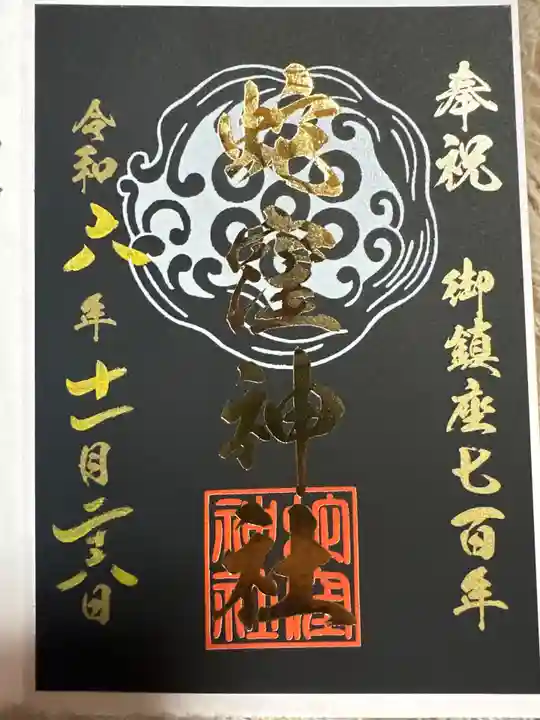 奉祝 御鎮座七百年
蛇窪神社
蛇窪神社
令和八年十一月二十八日